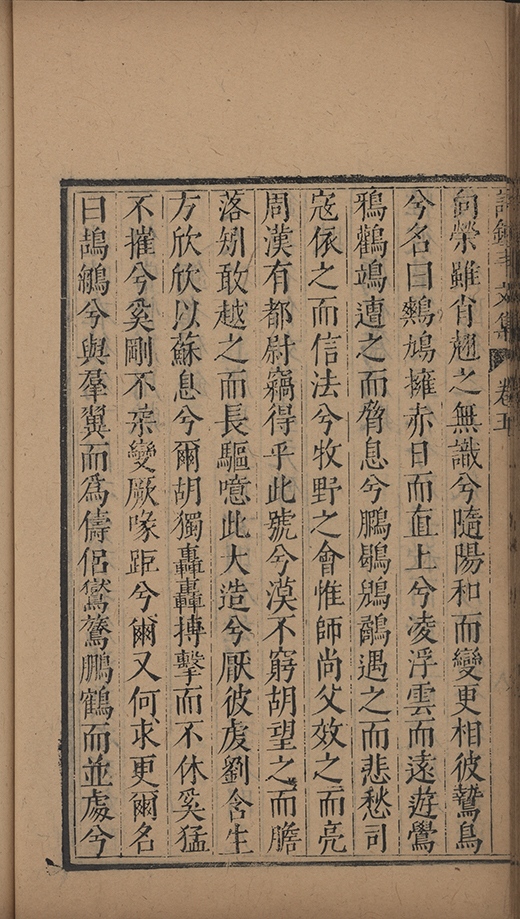 文集 卷五
向榮雖肖翹之無識兮隨陽和而變更相彼鷙鳥
兮名曰鳩擁赤日而直上兮凌浮雲而遠遊
鴉鸛遭之而脅息兮鵬遇之而悲愁司
寇依之而信法兮牧野之會惟師尚父效之而亮
周漢有都尉竊得乎此號兮漠不窮胡望之而膽
落矧敢越之而長驅噫此大造兮厭彼虔劉含生
方欣欣以蘇息兮爾胡獨轟轟搏擊而不休奚猛
不摧兮奚剛不柔變厥喙距兮爾又何求更爾名
曰鴶鵴兮與羣翼而爲儔侶鸑鷟鵬鶴而並處兮